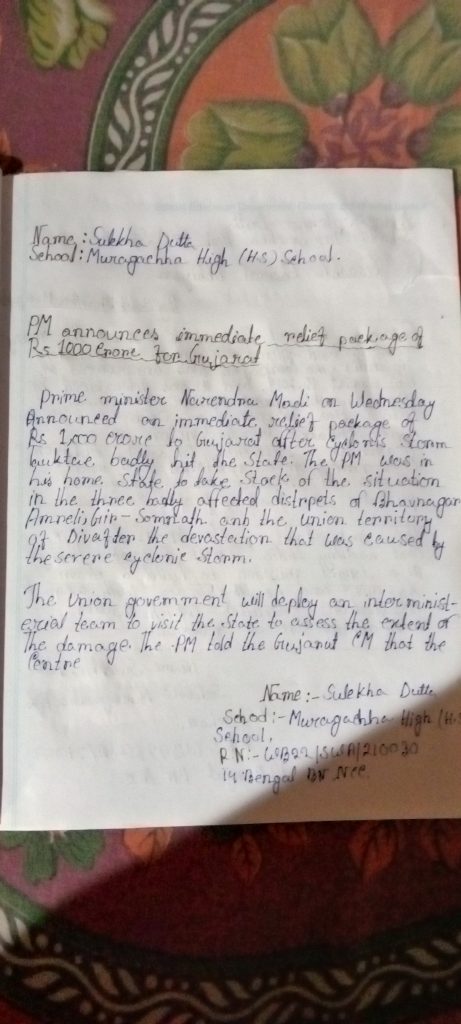 Name : Sulekha Dutta
School : Muragachha High (H.S) School.
PM announces immediate relief package of
Rs 1000 Crore for Gujarat
Prime minister Narendra Modi on Wednesday
Announced an immediate relief package of
Rs 1,000 crore to Gujarat after cyclonis Storm
badly hit the State. The PM was in
his home State to take Stock of the situation
in the three badly affected of Bhavnagar
Amreli Gir - Somnath and the union territory
of the devastation that was caused by
the serere cyclonic Storm.
The Union government will deploy an inter minist-
erial team to visit the State to assess the extent of
The damage. The PM told the Gujarat CM that the
Centre
Name :- Sulekha Dutta
School :- Muragachha High (H.S
School,
R N :- WB22/SWA/210030
14 Bengal BN NCC.